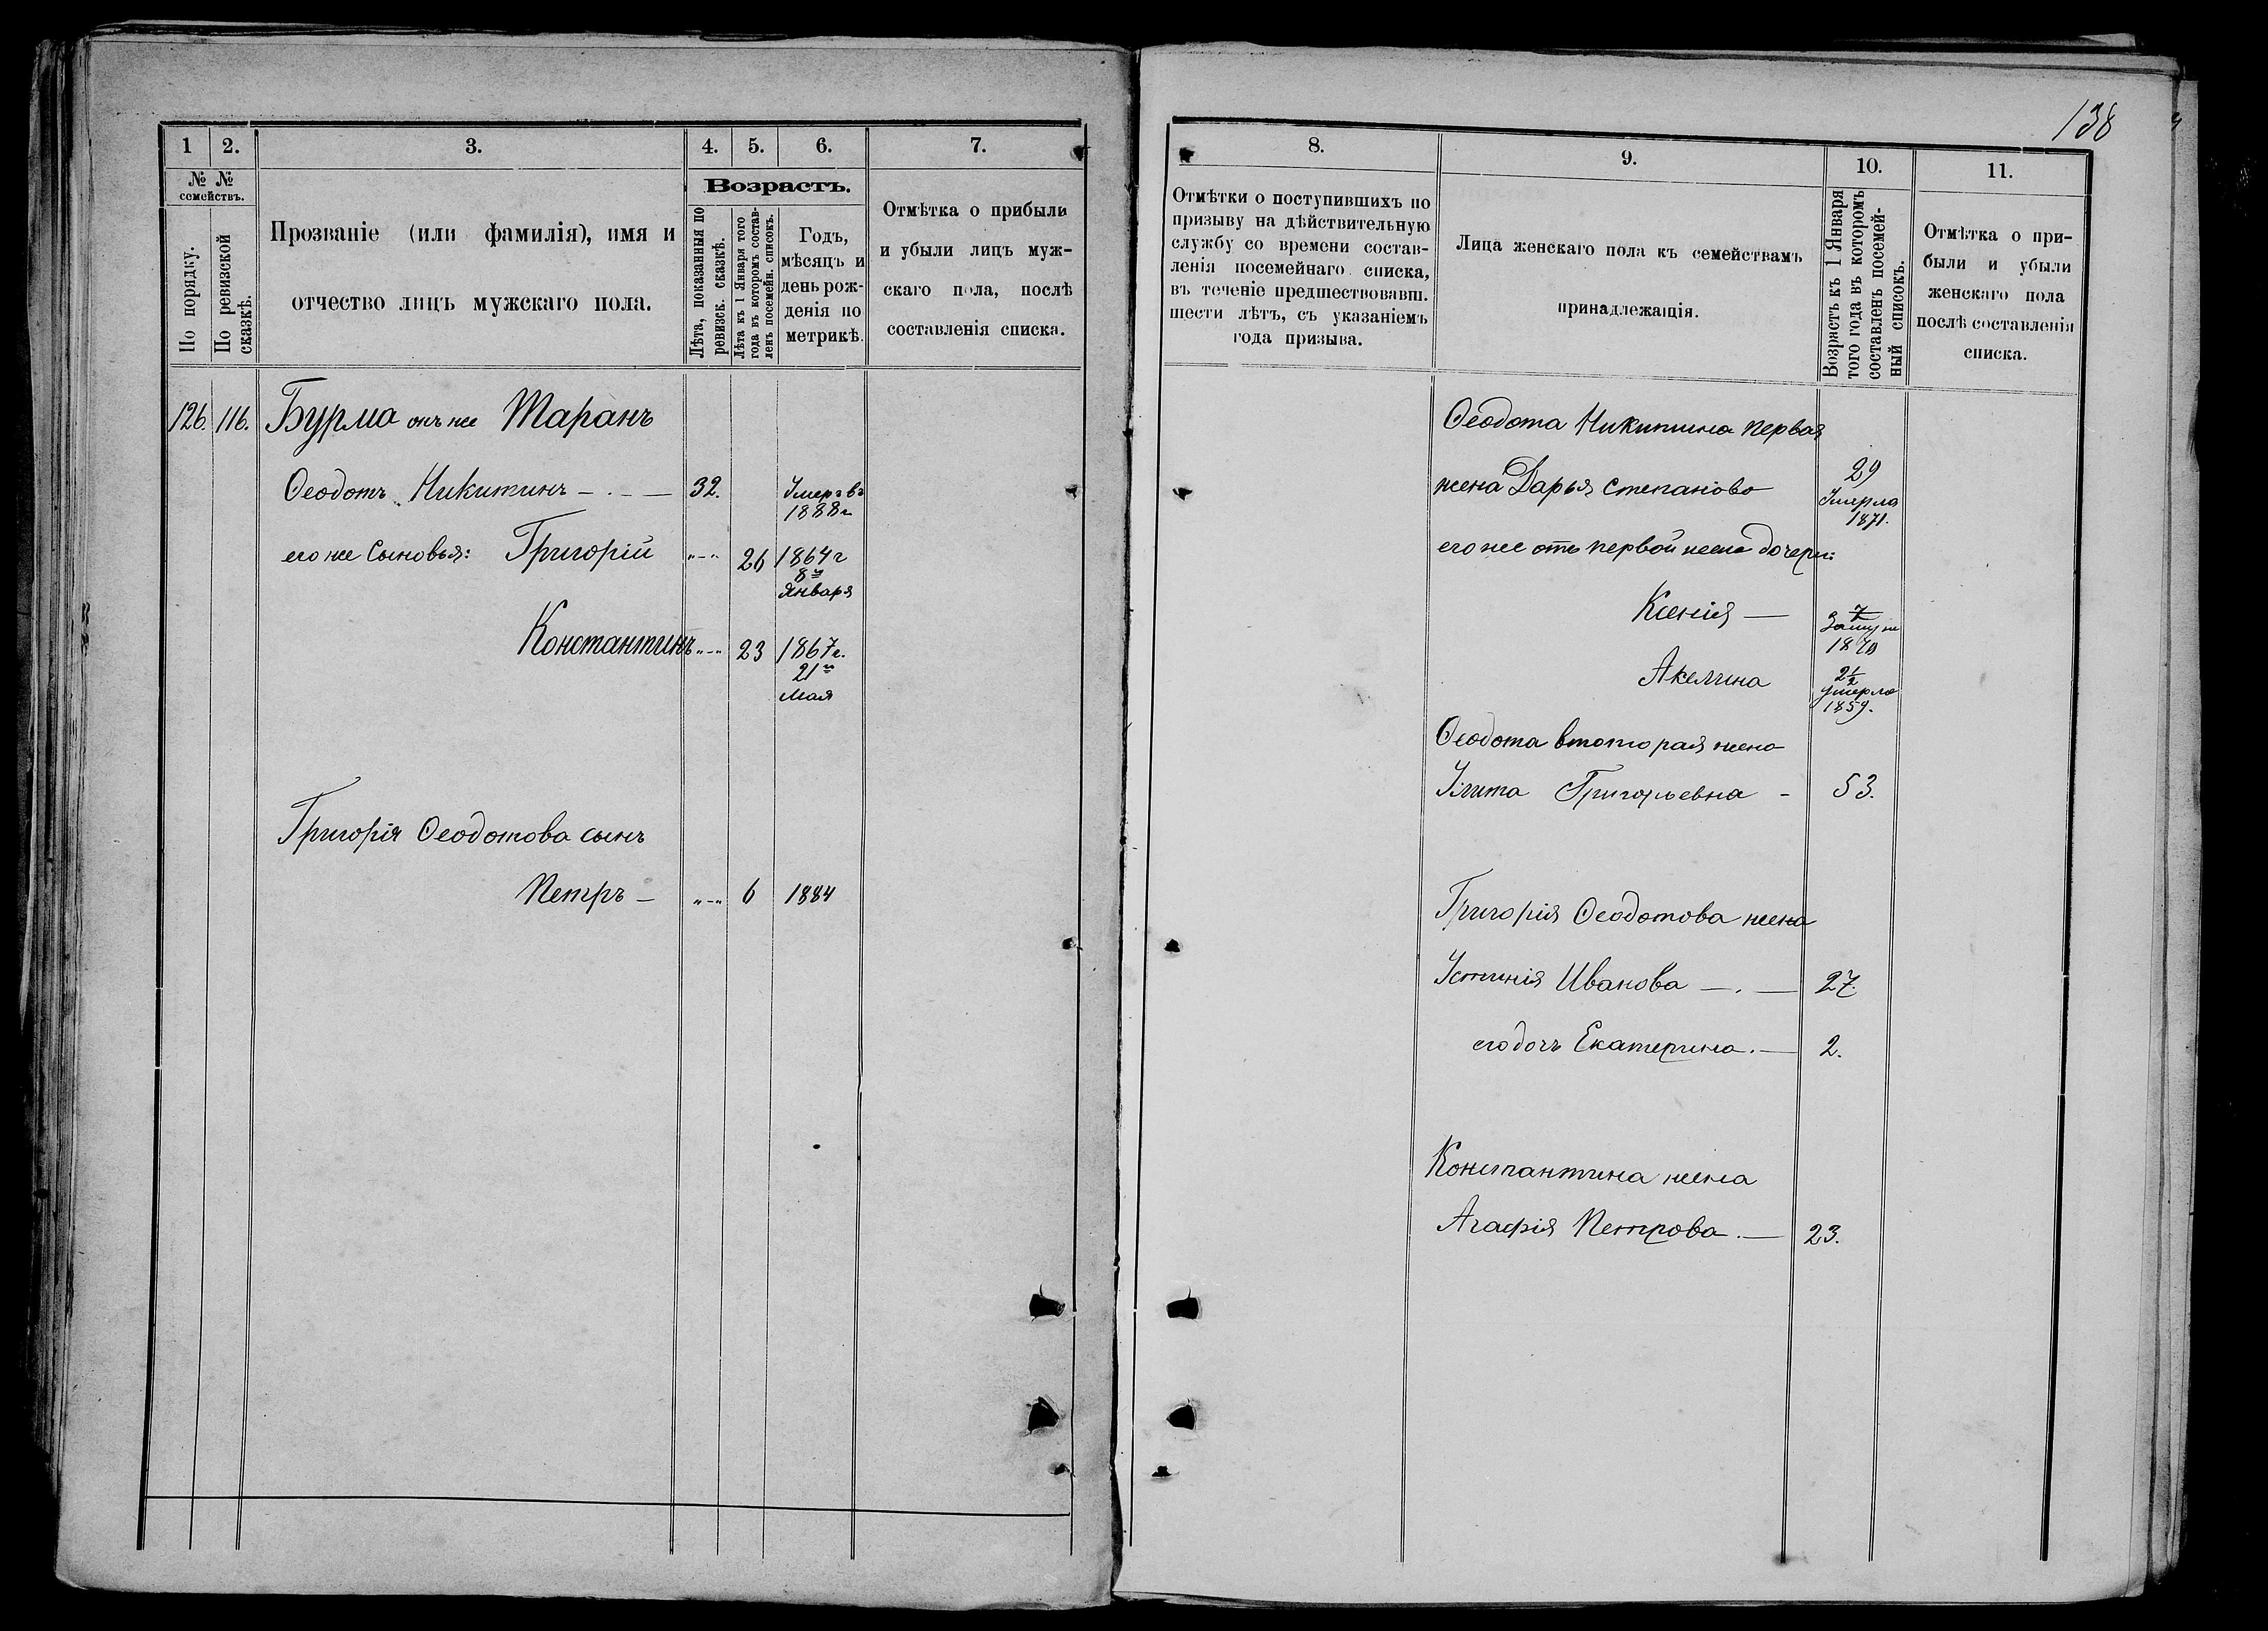 138
1
2.
3.
4.
5.
6.
7.
№ №
семействъ.
По порядку.
По ревизской
сказкѣ.
Прозваніе (или фамилія), имя и
отчество лицъ мужскаго пола.
Возрастъ.
Лѣта, показанныя по
ревизск. сказкѣ.
Лѣта къ 1 Января того
года въ которомъ состав-
ленъ посемейн. списокъ.
Годъ,
мѣсяцъ и
день рож-
денія по
метрикѣ.
Отмѣтка о прибыли
и убыли лицъ муж-
скаго пола, послѣ
составленія списка.
126. 116. Бурма онъ же Таранъ
Ѳеодотъ Никитинъ — . — 32. Умеръ въ
1888 г
его же Сыновья: Григорій „–„ 26 1864 г
8го
Января
Константинъ „–„ 23 1867 г.
21го
Мая
Григорія Ѳеодотова сынъ
Петръ — „–„ 6 1884
8.
9.
10.
11.
Отмѣтки о поступившихъ по
призыву на дѣйствительную
службу со времени состав-
ленія посемейнаго списка,
въ теченіе предшествовавш.
шести лѣтъ, съ указаніемъ
года призыва.
Лица женскаго пола къ семействамъ
принадлежащія.
Возрастъ къ 1 Января
того года въ которомъ
составленъ посемей-
ный списокъ.
Отмѣтка о при-
были и убыли
женскаго пола
послѣ составленія
списка.
Ѳеодота Никитина первая
жена Дарья Степанова 29
Умерла
1871.
его же отъ первой жены дочери:
Ксенія — 7
Замуж
1870
Акелина 2½
умерла
1859.
Ѳеодота вто торая жена
Улита Григорьевна - 53.
Григорія Ѳеодотова жена
Устинія Иванова — . — 27.
его дочь Екатерина. — 2.
Константина жена
Агафія Петрова. — 23.